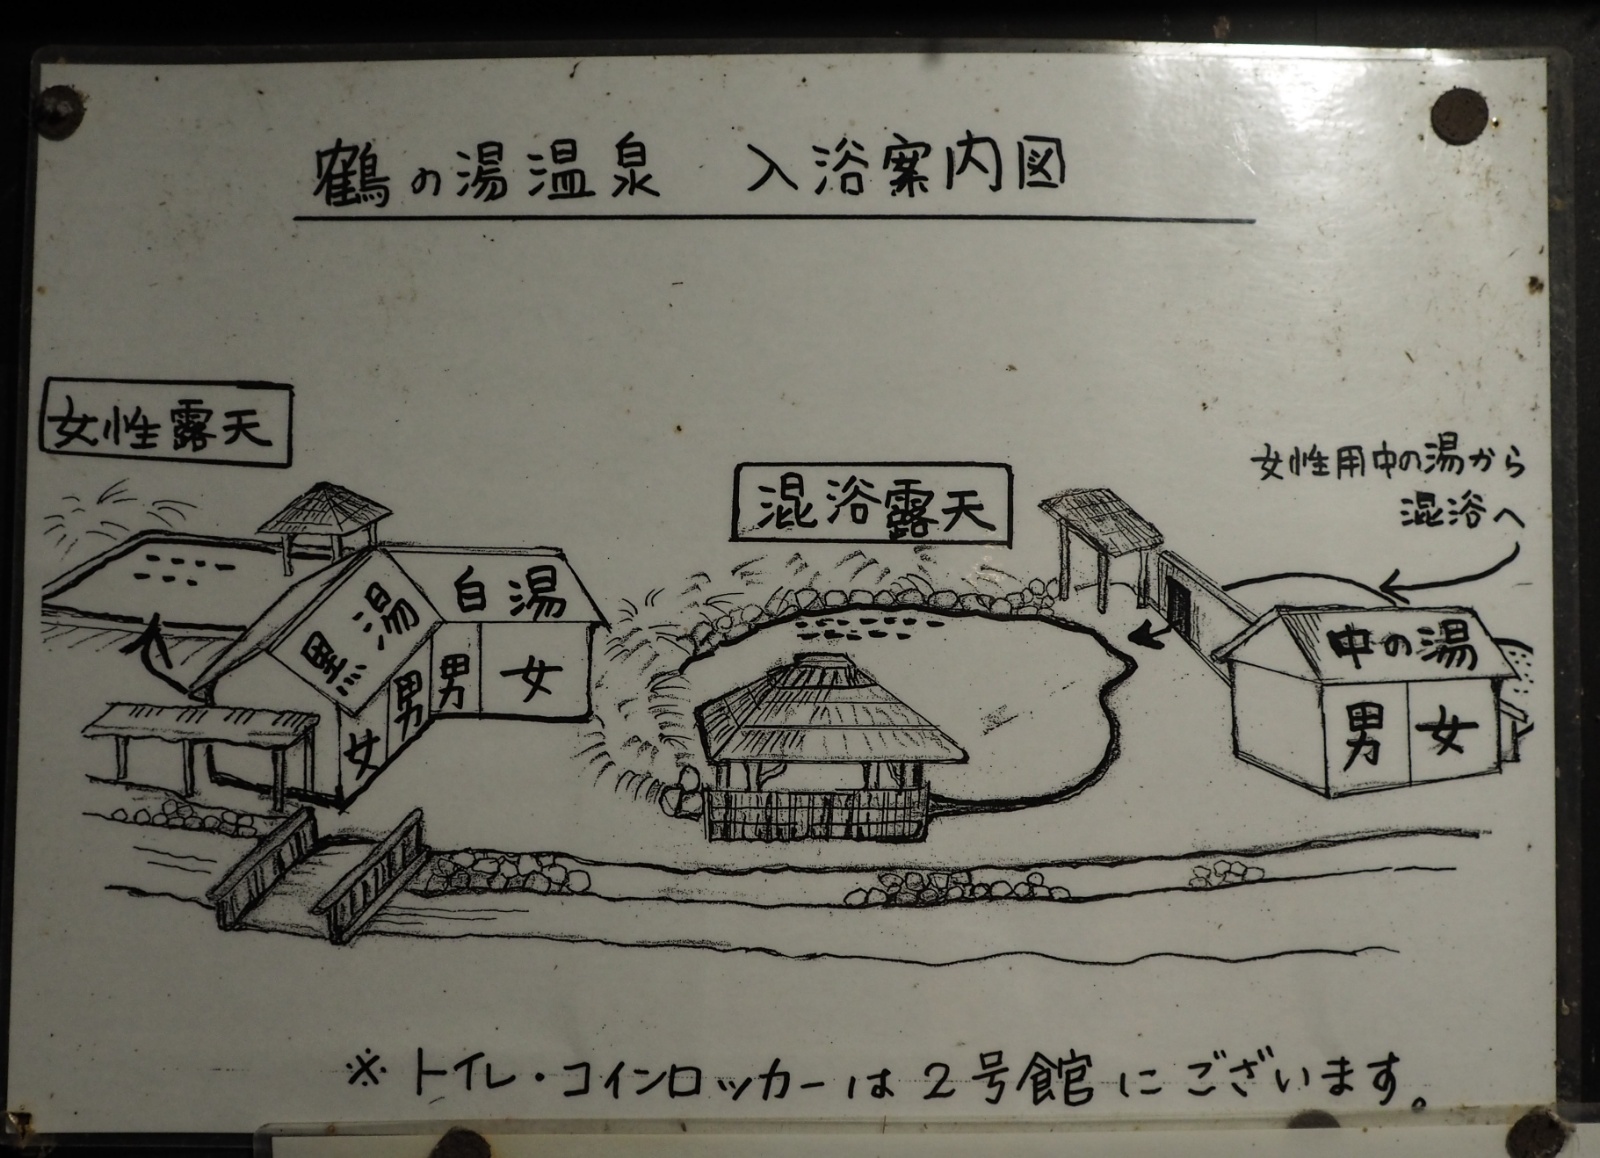 鶴の湯温泉 入浴案内図
女性露天
混浴露天
女性用中の湯から
混浴へ
黒湯
白湯
女
男
男
女
中の湯
男
女
※トイレ・コインロッカーは2号館にございます。